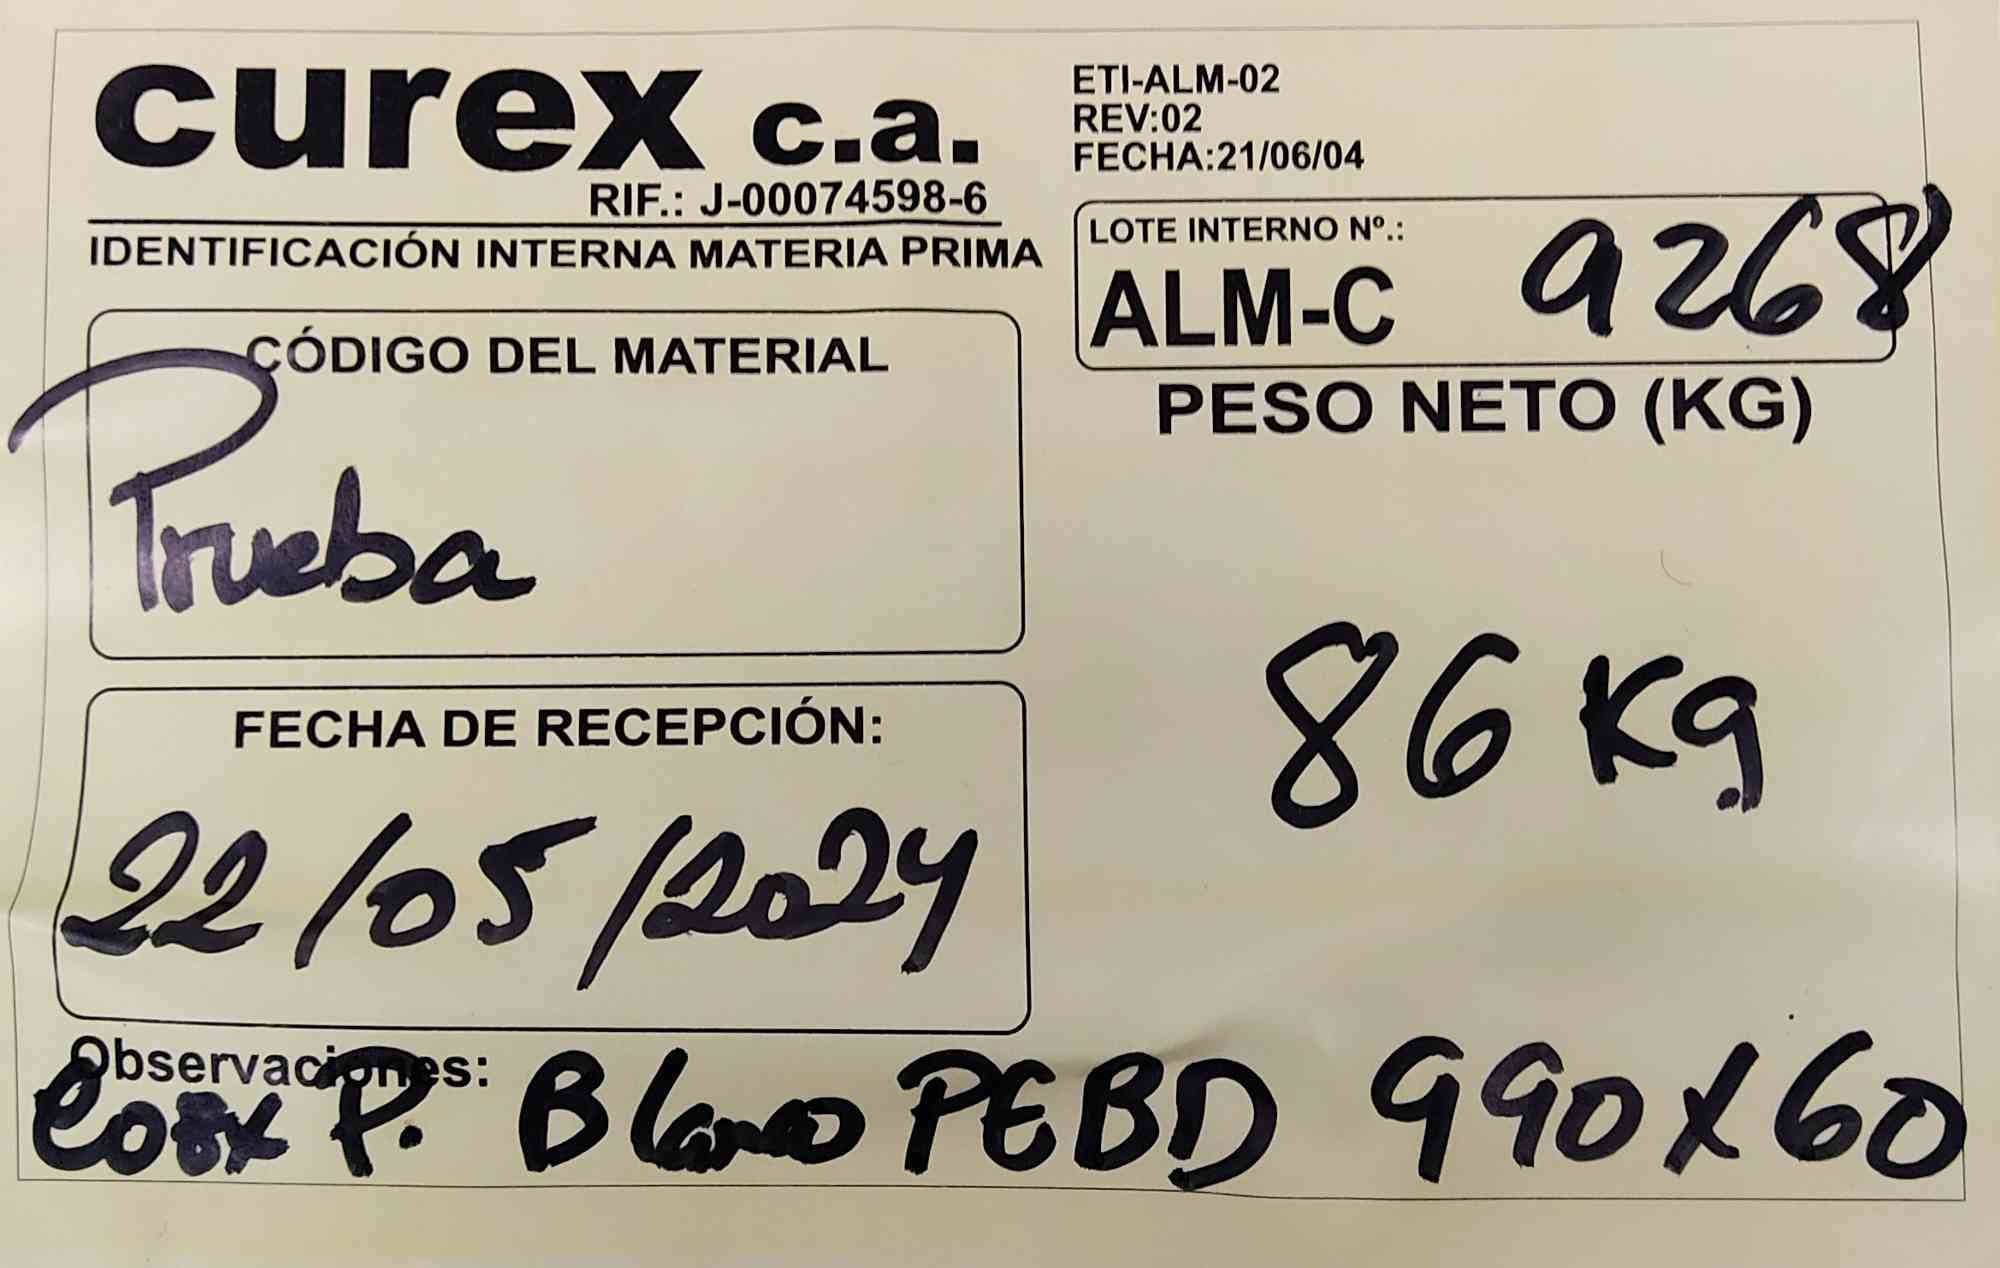 curex c.a.
RIF.: J-00074598-6
IDENTIFICACIÓN INTERNA MATERIA PRIMA
ETI-ALM-02
REV:02
FECHA:21/06/04
LOTE INTERNO Nº.:
ALM-C 9268
CÓDIGO DEL MATERIAL
Prueba
PESO NETO (KG)
86 Kg
FECHA DE RECEPCIÓN:
22/05/2024
Observaciones:
Coex P. Blanco PEBD 990x60